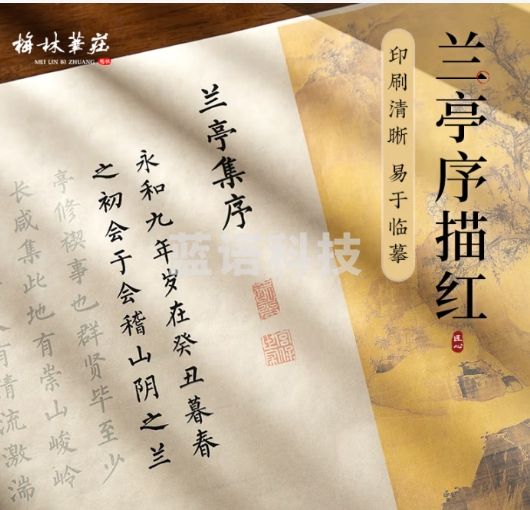 梅林華莊
MEI LIN BI ZHUANG
兰亭序描红
匠心
印刷清晰 易于临摹
兰亭集序
永和九年岁在癸丑暮春
之初会于会稽山阴之兰
亭修禊事也群贤毕至少
长咸集此地有崇山峻岭
有清流激湍
蓝语科技